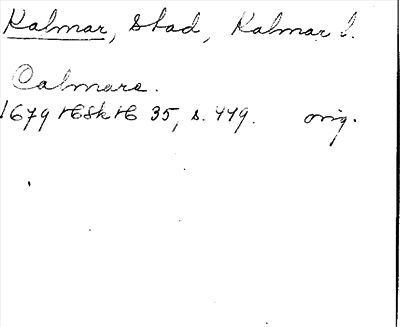 Kalmar, Stad, Kalmar l.
Calmare.
1679 HSkH 35, s. 449. orig.